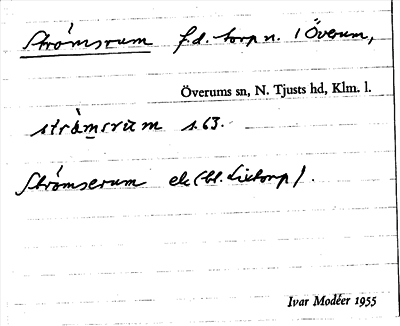 Strömsrum f.d. torp n. i Överum,
Överums sn, N. Tjusts hd, Klm. l.
stràmsrum s. 63.
Strömserum ek (bl. Lietorp).
Ivar Modéer 1955